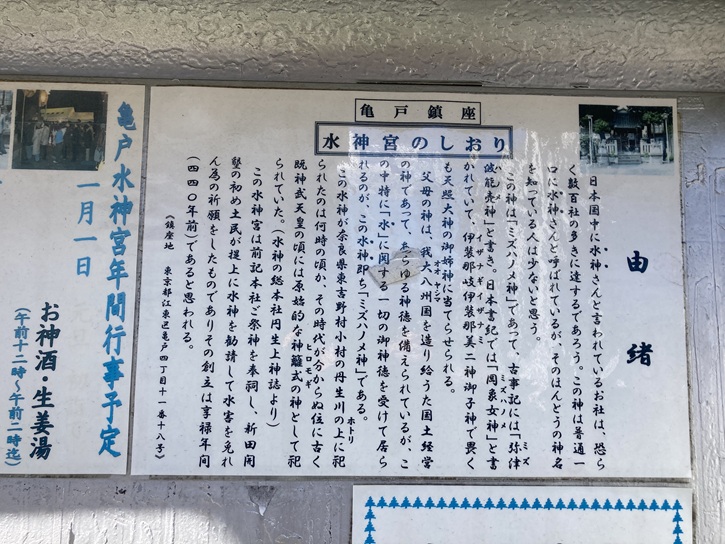 亀戸鎮座
水神宮のしおり
由緒
日本国中に水神さんと言われているお社は、恐ら
く数百社の多きに達するであろう。この神は普通一
口に水神さんと呼ばれているが、そのほんとうの神名
を知っている人は少ないと思う。
この神は「ミズハノメ神」であって、古事記には「弥津
ミズ
波能売神」と書き。日本書紀では「罔象女神」と書
ハノメ
ミズハノメ
かれていて、伊装那岐伊装那美二神御子神で畏く
イザナギイザナミ
も天照大神の御姉神に当てらせられる。
父母の神は、我大八州国を造り給うた国土経営
オオヤシマ
の神であって、あらゆる神徳を備えられているが、こ
の中特に「水」に関する一切の御神徳を受けて居ら
れるのが、この水神即ち「ミズハノメ神」である。
この水神が奈良県東吉野村小村の丹生川の上に祀
ホトリ
られたのは何時の頃か、その時代が分からぬ位に古く
既神武天皇の頃には原始的な神籬式の神として祀
ヒロモギ
られていた。(水神の総本社丹生上神誌より)
この水神宮は前記本社ご祭神を奉祠し、新田開
墾の初め土民が提上に水神を勧請して水害を免れ
ん為の祈願をしたものでありその創立は享禄年間
(四四〇年前)であると思われる。
《鎮座地 東京都江東区亀戸四丁目十一番十八号》
亀戸水神宮年間行事予定
一月一日
お神酒・生姜湯
(午前十二時〜午前二時迄)